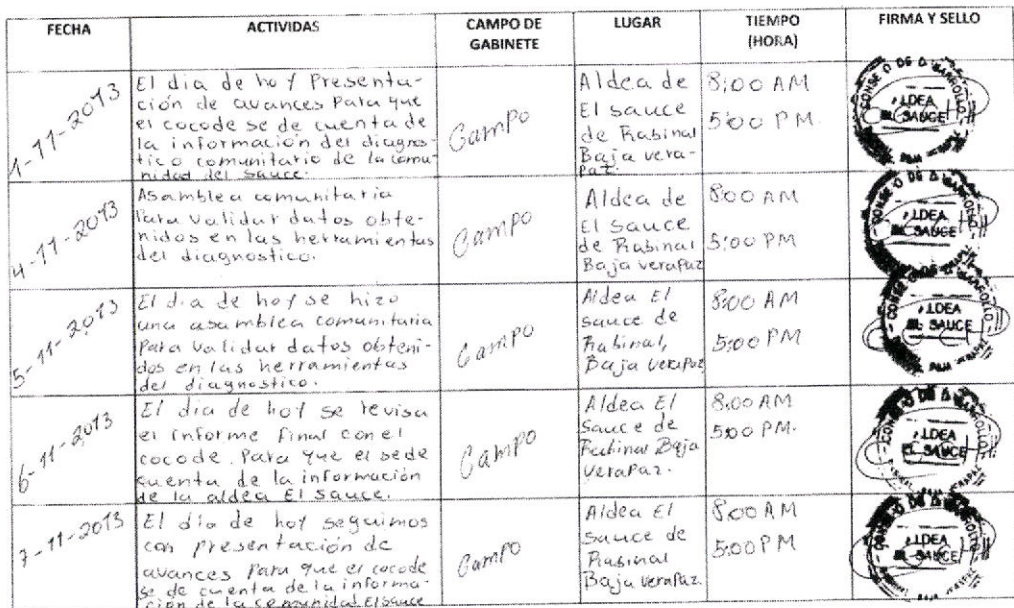 FECHA ACTIVIDAS CAMPO DE GABINETE LUGAR TIEMPO (HORA) FIRMA Y SELLO
1-11-2013
El dia de hoy Presenta-
ción de avances Para que
el cocode se de cuenta de
la información del diagnos-
tico comunitario de la comu-
nidad del Sauce.
Campo
Aldea de
El Sauce
de Rabinal
Baja vera-
paz.
8:00 AM
5:00 PM.
CONSEJO DE DESARROLLO
ALDEA
EL SAUCE
4-11-2013
Asamblea comunitaria
Para validar datos obte-
nidos en las herramientas
del diagnostico.
Campo
Aldea de
El Sauce
de Rabinal
Baja verapaz
8:00 AM
5:00 PM
CONSEJO DE DESARROLLO
ALDEA
EL SAUCE
5-11-2013
El dia de hoy se hizo
una asamblea comunitaria
Para validar datos obteni-
dos en las herramientas
del diagnostico.
Campo
Aldea El
Sauce de
Rabinal,
Baja verapaz
8:00 AM
5:00 PM
CONSEJO DE DESARROLLO
ALDEA
EL SAUCE
6-11-2013
El dia de hoy se revisa
el informe Final con el
cocode. Para que el sede
cuenta de la información
de la aldea El Sauce.
Campo
Aldea El
Sauce de
Rabinal Baja
verapaz.
8:00 AM
5:00 PM.
CONSEJO DE DESARROLLO
ALDEA
EL SAUCE
7-11-2013
El día de hoy seguimos
con presentación de
avances Para que el cocode
se de cuenta de la informa-
ción de la comunidad El Sauce
Campo
Aldea El
Sauce de
Rabinal
Baja verapaz.
8:00 AM
5:00 PM
CONSEJO DE DESARROLLO
ALDEA
EL SAUCE